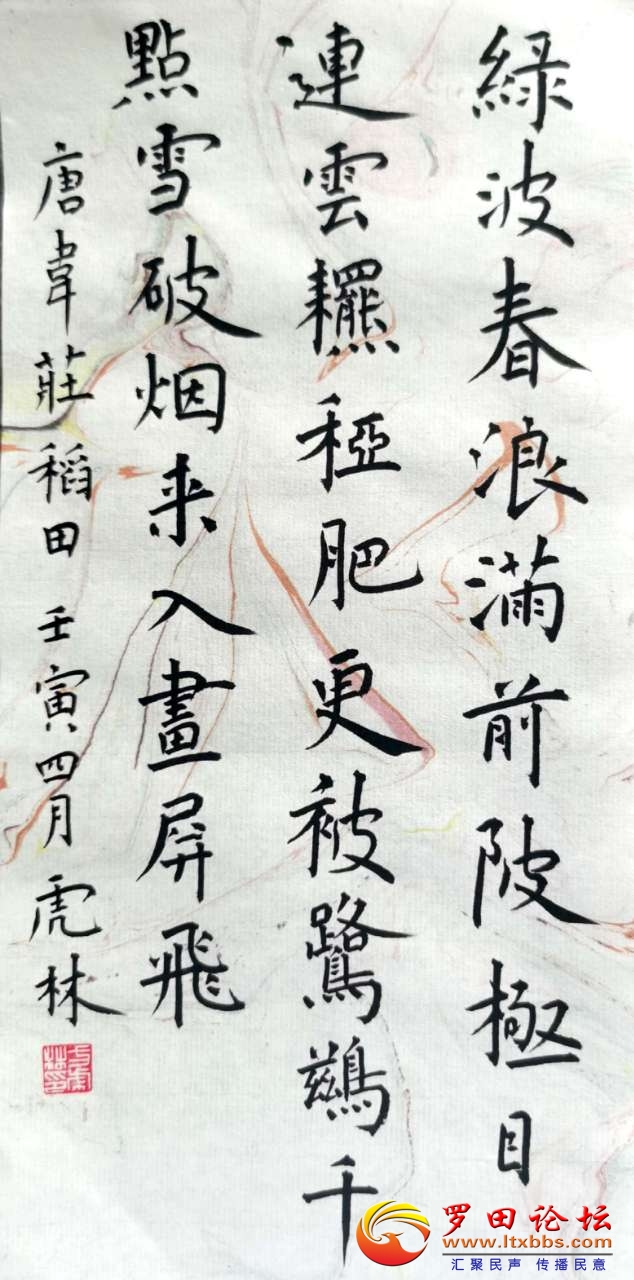 綠波春浪滿前陂極目
連雲䎱稏肥更被鷺鷀千
點雪破烟来入畫屏飛
唐韋莊稻田 壬寅四月 虎林
罗田论坛
www.ltxbbs.com
汇聚民声 传播民意